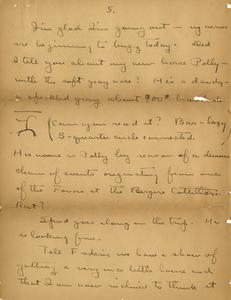 5.
I'm glad I'm going out — my nerves
are beginning to buzz today. Did
I tell you about my new horse Polly —
with the soft gray nose? He's a dandy —
a speckled gray about 900#
(Can you read it? Bar - lazy
S - quarter circle connected.)
His name is Polly by reason of a
chain of events originating from one
of the Favors at the Bergere Cotillion.
Rat?
Spud goes along on the trip. He
is looking fine.
Tell Frederic we have a show of
getting a very nice little house and
that I am now inclined to think it